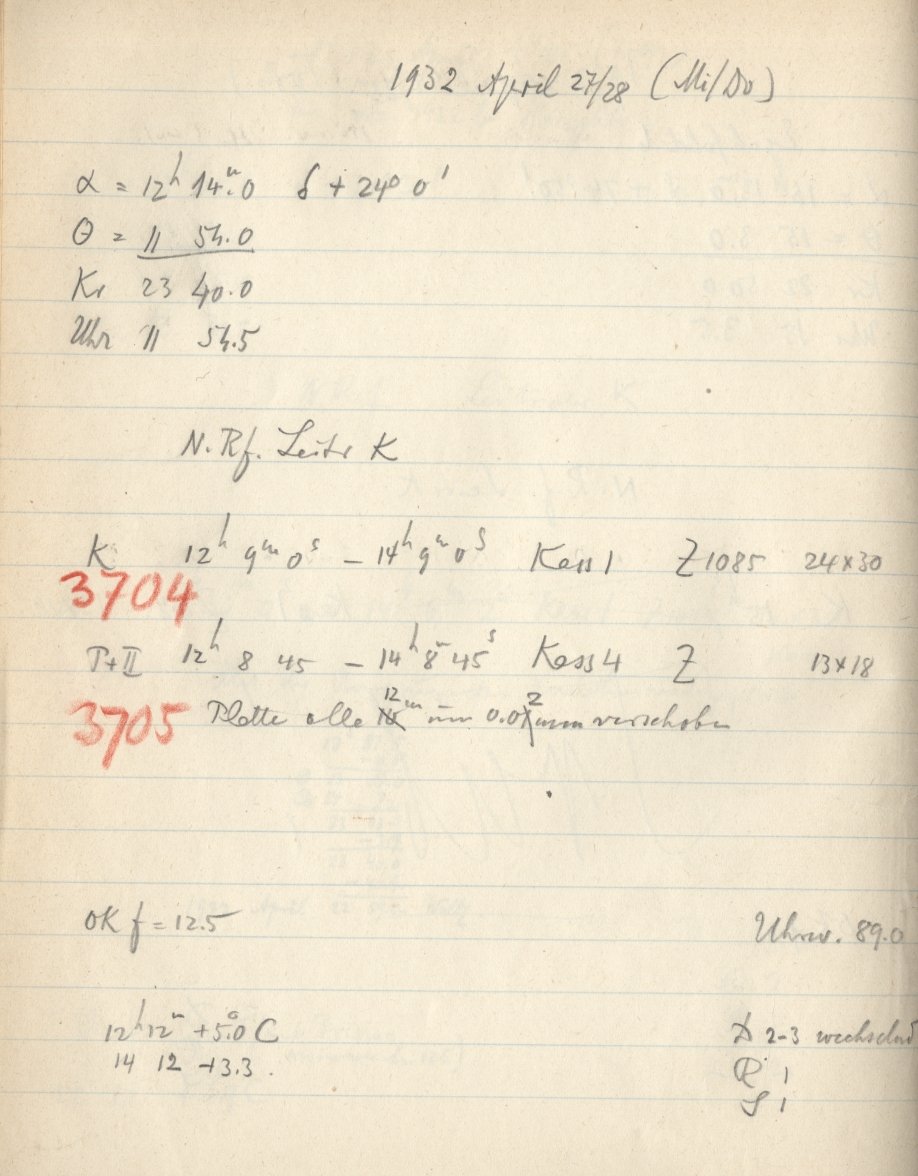 1932 April 27/28 (Mi/Do)
α = 12h 14m.0 δ + 24° 0'
θ = 11 54.0
Kr 23 40.0
Uhr 11 54.5
N. Rf. Leitr K
K 12h 9m 0s – 14h 9m 0s Kass 1 Z 1085 24×30
3704
T+II 12h 8 45 – 14h 8m 45s Kass 4 Z 13×18
3705 Platte alle 12m um 0.02 mm verschoben
OK f = 12.5 Uhrw. 89.0
12h 12m +5.°0 C 2-3 wechselnd
14 12 +3.3 . R 1
S 1